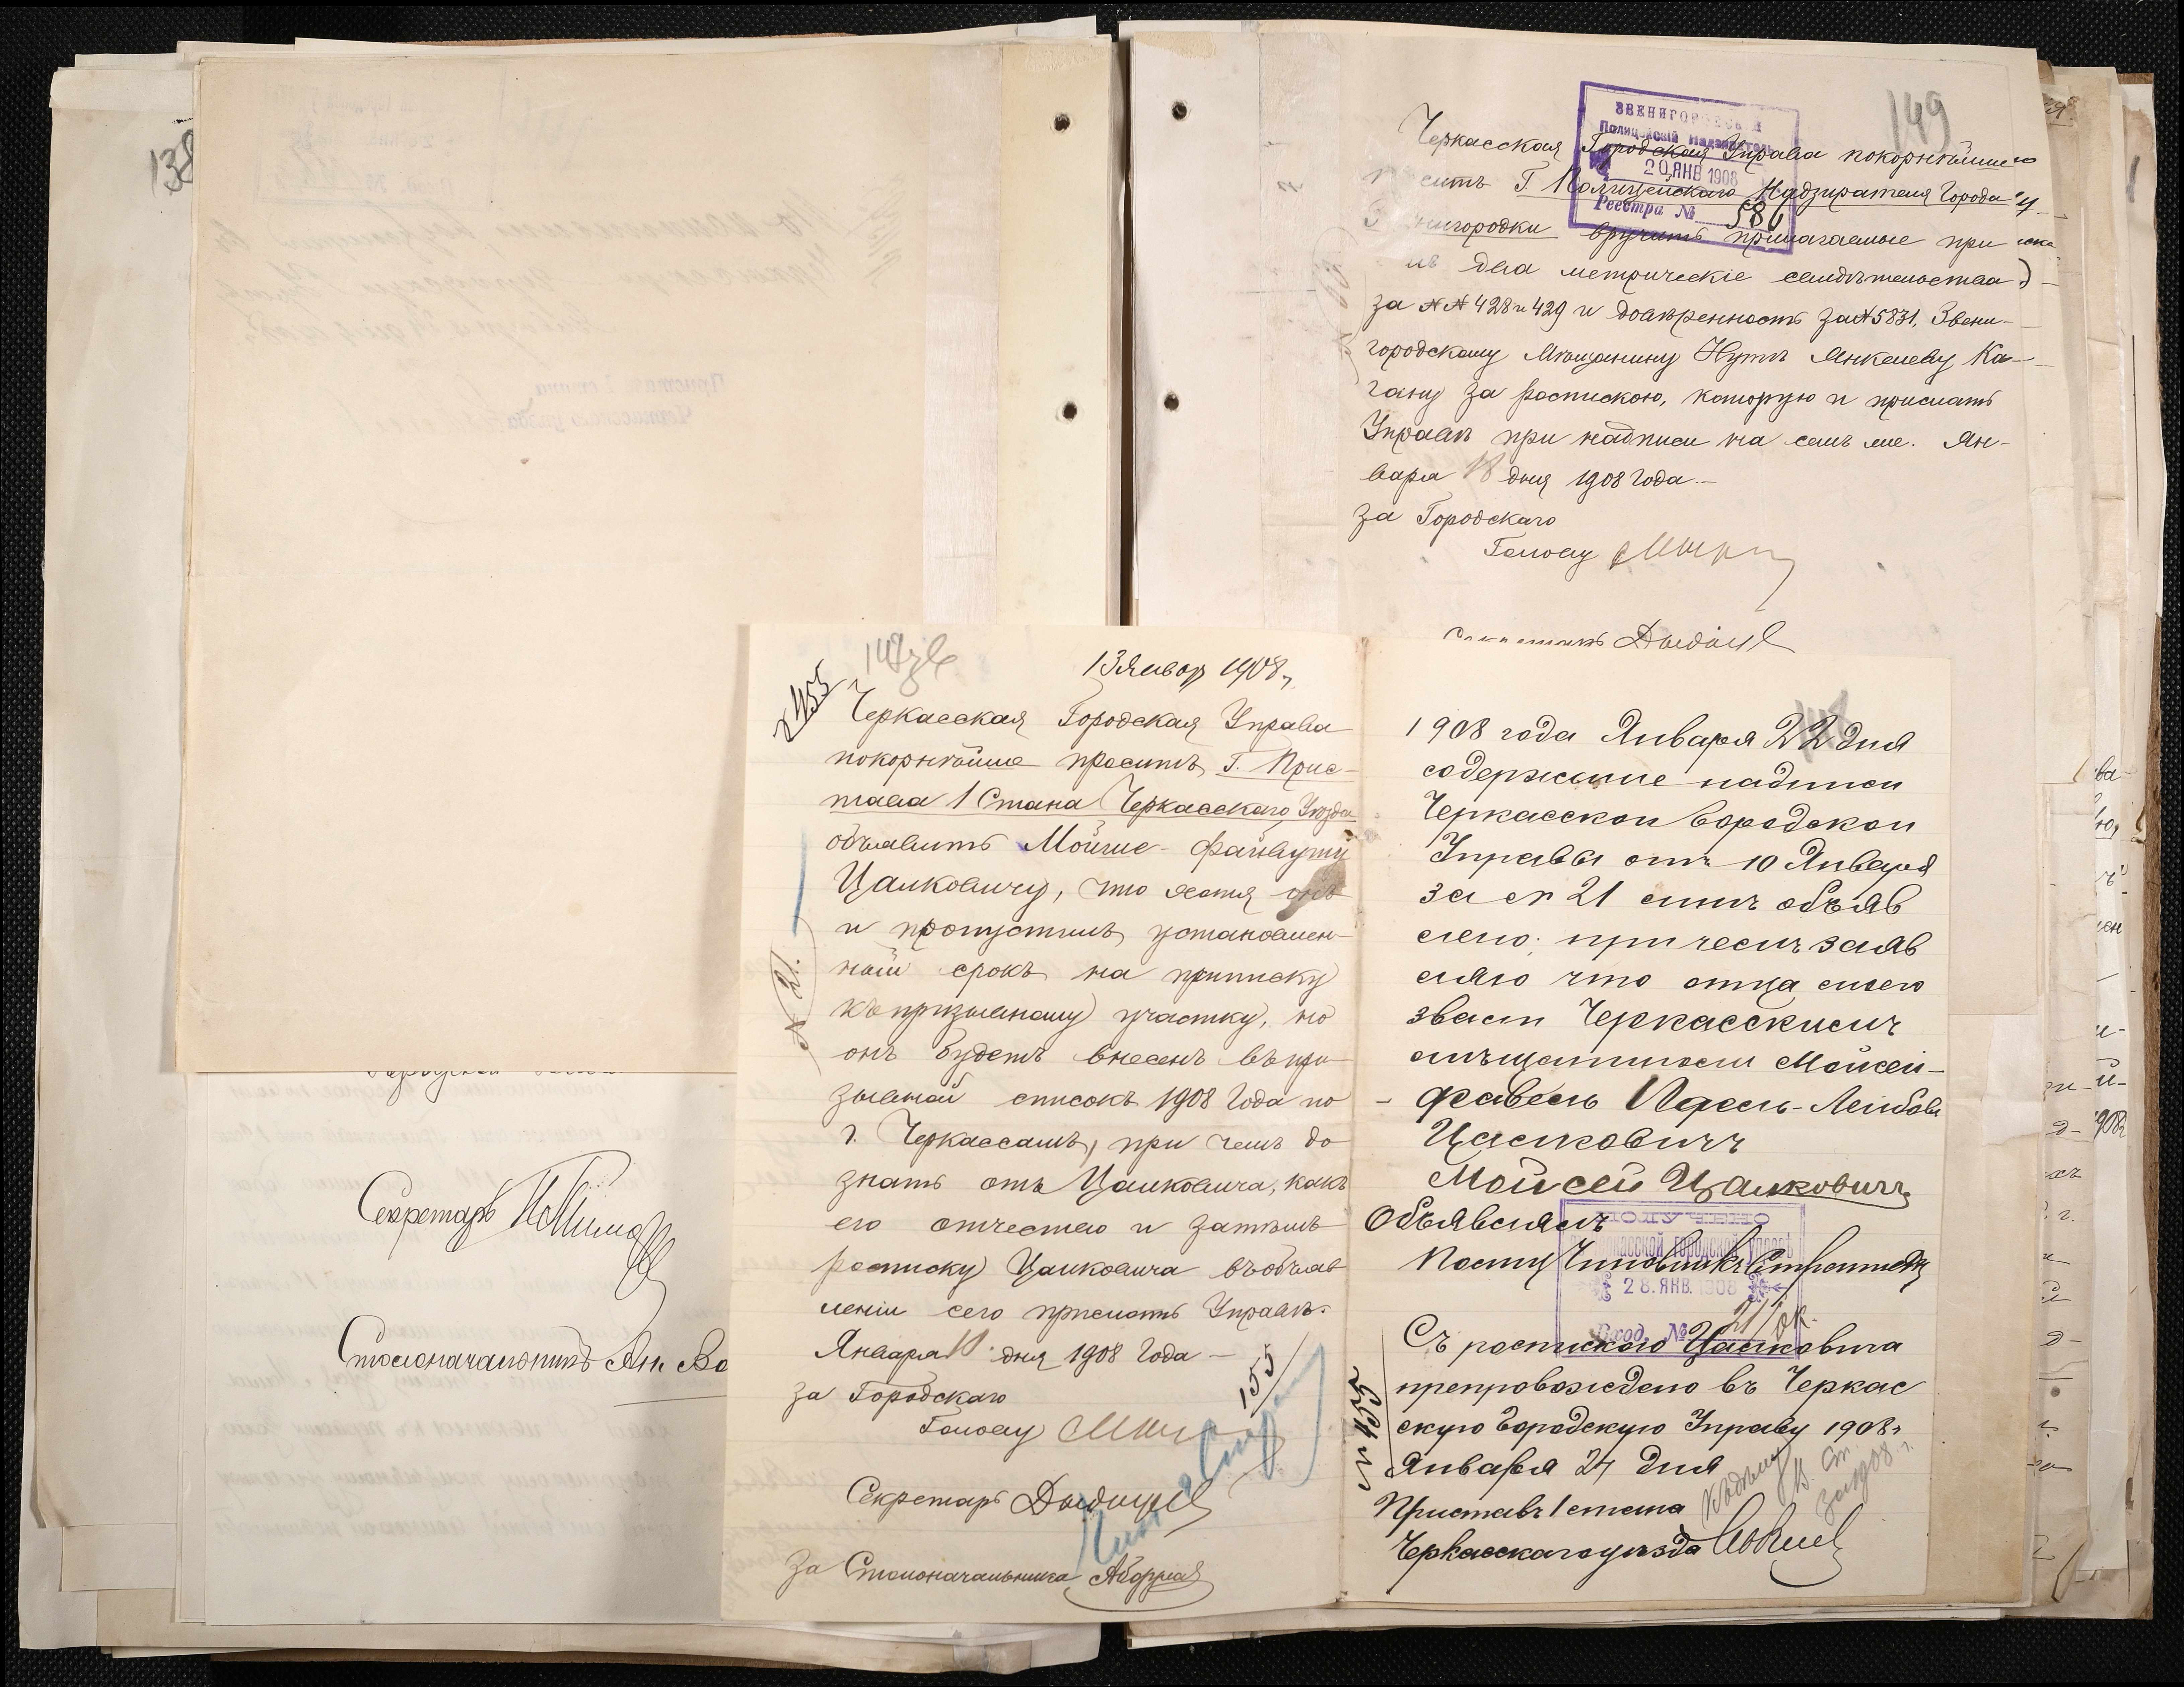 138
149
ЗВЕНИГОРОДСКІЙ
Полицейскій Надзиратель
20 ЯНВ 1908
Реестра № 586
Черкасская Городская Управа покорнѣйше
проситъ Г. Полицейскаго Надзирателя Города
Звенигородки вручить прилагаемые при
два метрическіе свидѣтельства
за №№ 428 и 429 и довѣренность за № 5831, Звени-
городскому Мѣщанину Нутѣ Янкелеву Ка-
гану за роспискою, которую и прислать
Управѣ при надписи на семъ же. Ян-
варя 18 дня 1908 года.-
За Городскаго
Голову
Секретарь
Секретарь
Столоначальникъ
13 Январ 1908 г.
№ 155
Черкасская Городская Управа
покорнѣйше проситъ Г. Прис-
тава 1 Стана Черкасскаго Уѣзда
объявить Мойше-Файвушу
Цалковичу, что хотя онъ
и пропустилъ установлен-
ный срокъ на приписку
къ призывному участку, но
онъ будетъ внесенъ въ при-
зывной списокъ 1908 года по
г. Черкассамъ, при чемъ до-
знать отъ Цалковича, какъ
его отчество и затѣмъ
росписку Цалковича въ объяв-
леніи сего прислать Управѣ.
Января 10 дня 1908 года -
№ 21.
За Городскаго
Голову
155
Секретарь
За Столоначальника
1908 года Января 22 дня
содержание надписи
Черкасской Городской
Управы отъ 10 Января
за № 21 мнѣ объяв
лено; при чемъ заяв
ляю что отца моего
звали Черкасскимъ
мѣщаниномъ Мойсей-
- Фавель Иосель-Лейбовъ
Цалковичъ
Мойсей Цалковичъ
Объявлялъ
Полиц Чиновникъ
Черкасской городской управѣ
28. ЯНВ. 1908
Вход. № 217
Съ роспискою Цалковича
препровождено въ Черкас
скую Городскую Управу 1908 г.
Января 24 дня
№ 155
Приставъ 1 стана
Черкасскаго уѣзда